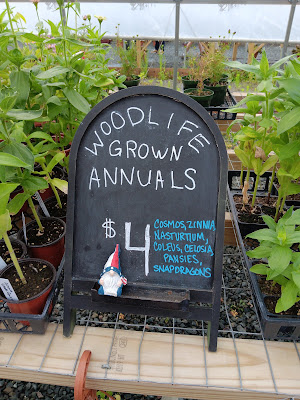 WOODLIFE
GROWN
ANNUALS
$4
COSMOS, ZINNIA
NASTURTIUM,
COLEUS, CELOSIA
PANSIES,
SNAPDRAGONS